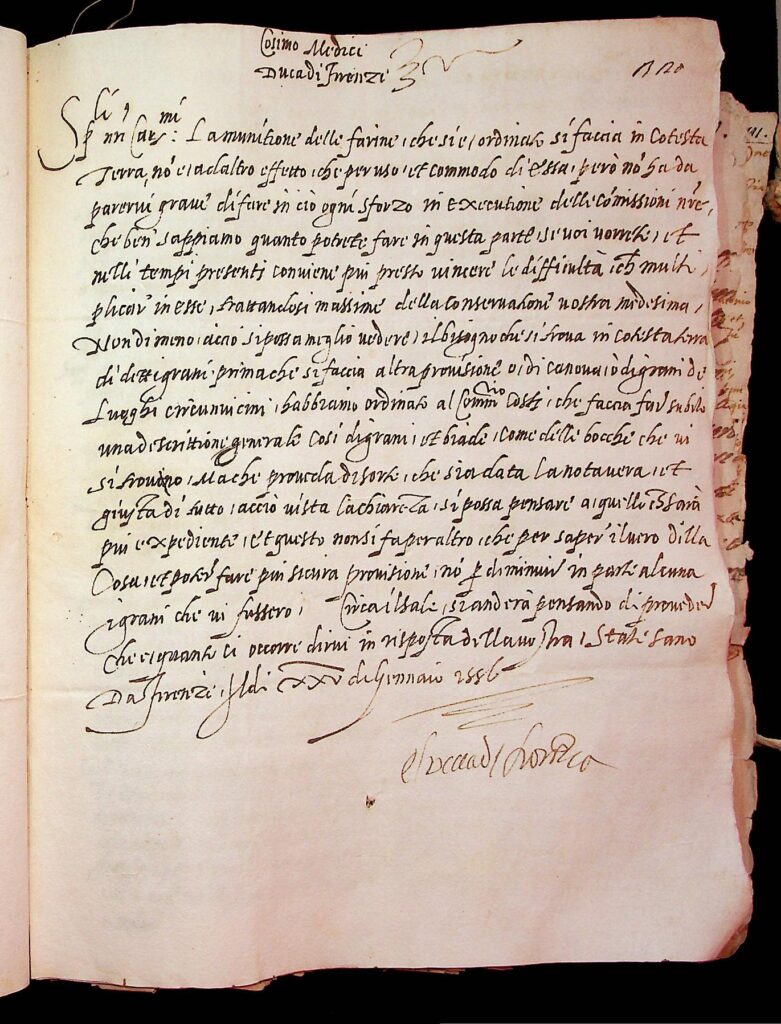 Cosimo Medici
Duca di Firenze
Sp.li nri Car.mi: La munitione delle farine, che si e, ordinato si faccia in Cotesta
Terra, nō e, ad altro effetto, che per uso, et commodo di Essa, però nō ha da
parervi grave di fare in ciò ogni sforzo in executione delle cōmissioni nrē,
che ben sappiamo quanto potrete fare in questa parte, se voi vorrete, et
nelli tempi presenti conviene piu presto vincere le difficultà, ch multi
plicar in esse, trattandosi massime della conservatione vostra medesima,
Nondimeno, acciò si possa meglio vedere, il bisogno che si trova in cotesta terra
di detti grani prima che si faccia altra provisione o, di canova, ò di grani de
Luoghi circumvicini, habbiamo ordinato al Commrio Costi, che faccia far subito
una descrittione generale cosi di grani, et biade, come delle bocche che vi
si trovino, Ma che proveda di sorte, che sia data la nota vera, et
giusta di tutto, acciò vista la chiareza, si possa pensare a, quello ch sarà
piu expediente, et questo non si fa per altro, che per saper il vero dilla
Cosa, et poter fare piu sicura provisione, nō p diminuir in parte alcuna
i grani che vi fussero, Circa il sale, si anderà pensando di proveder
che e, quanto ci occorre dirvi in risposta della vostra, State sano
Da Firenze, Il di XXV di Gennaio 1556
El Duca di Fiorenza